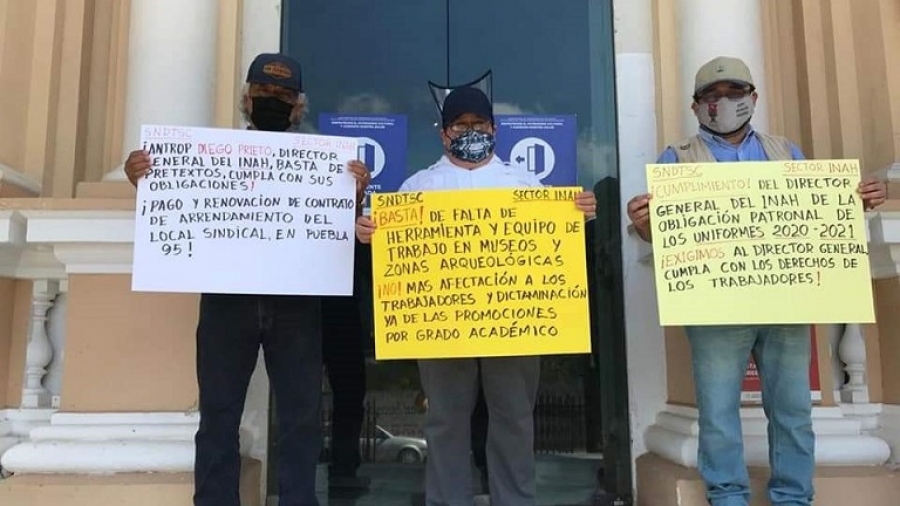 SNDTSC SECTOR INAH
¡ANTROP DIEGO PRIETO, DIRECTOR
GENERAL DEL INAH, BASTA DE
PRETEXTOS, CUMPLA CON SUS
OBLIGACIONES!
¡PAGO Y RENOVACION DE CONTRATO
DE ARRENDAMIENTO DEL
LOCAL SINDICAL, EN PUEBLA
95!
SNDTSC SECTOR INAH
¡BASTA! DE FALTA DE
HERRAMIENTA Y EQUIPO DE
TRABAJO EN MUSEOS Y
ZONAS ARQUEOLÓGICAS
¡NO! MAS AFECTACIÓN A LOS
TRABAJADORES Y DICTAMINACIÓN
YA DE LAS PROMOCIONES
POR GRADO ACADÉMICO
SNDTSC SECTOR INAH
¡CUMPLIMIENTO! DEL DIRECTOR
GENERAL, DEL INAH DE LA
OBLIGACIÓN PATRONAL DE
LOS UNIFORMES 2020-2021
¡EXIGIMOS AL DIRECTOR GENERAL
CUMPLA CON LOS DERECHOS DE
LOS TRABAJADORES!